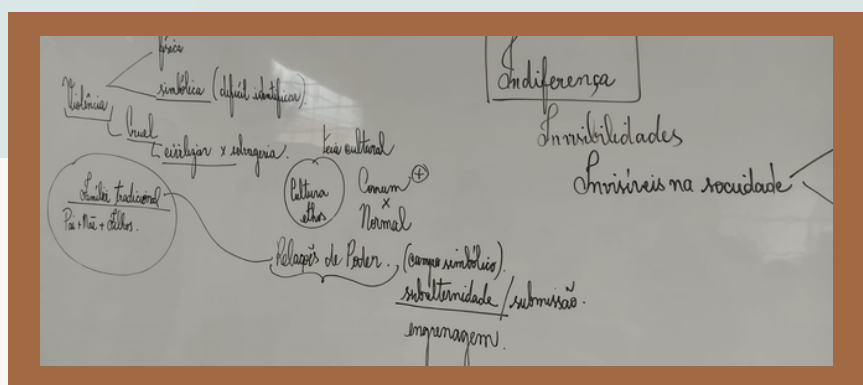 física
Violência
simbólica (difícil identificar).
Cruel
civilizar x selvageria.
teia cultural
Família tradicional
Pai + Mãe + Filhos.
Cultura
ethos
Comum +
x
Normal
Relações de Poder. (campo simbólico).
subalternidade / submissão.
engrenagem.
Indiferença
Invisibilidades
Invisíveis na sociedade